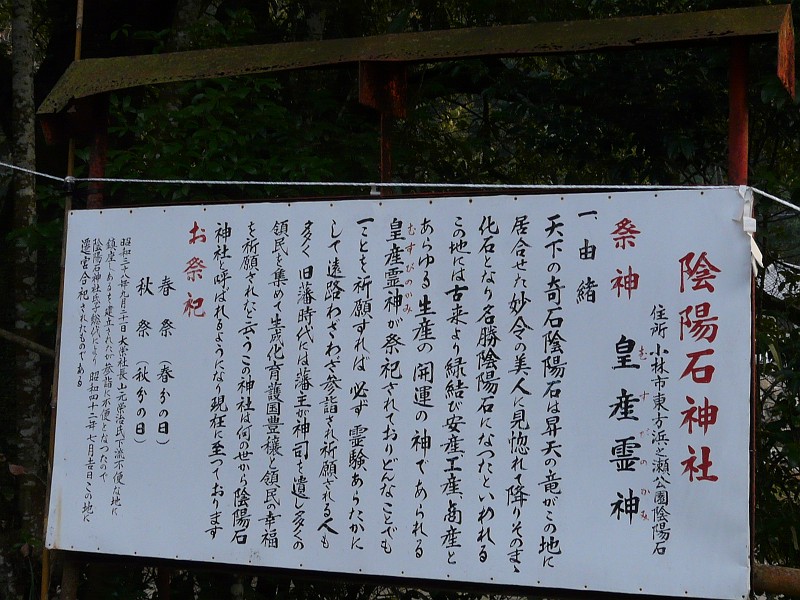 陰陽石神社
住所 小林市東方浜之瀬公園陰陽石
祭神 皇産霊神
むすびのかみ
一 由緒
天下の奇石陰陽石は昇天の竜がこの地に
居合せた妙令の美人に見惚れて降りそのまゝ
化石となり名勝陰陽石になつたといわれる
この地には古来より縁結び安産、工産、畜産と
あらゆる生産の開運の神であられる
皇産霊神が祭祀されておりどんなことでも
むすびのかみ
一ことを祈願すれば必ず霊験あらたかに
して遠路わざわざ参詣され祈願される人も
多く旧藩時代には藩主が神司を遺し多くの
領民を集めて生成化育護国豊穣と領民の幸福
を祈願されたと云うこの神社は何の世から陰陽石
神社と呼ばれるようになり現在に至つております
お祭祀
春祭 (春分の日)
秋祭 (秋分の日)
昭和三十八年九月二十一日大栄社長山元栄治氏下流不便な地に
鎮座しあるを建立されたが参詣に不便となつたので
陰陽石神社氏子総代により昭和四十二年七月吉日この地に
遷宮合祀されたものである